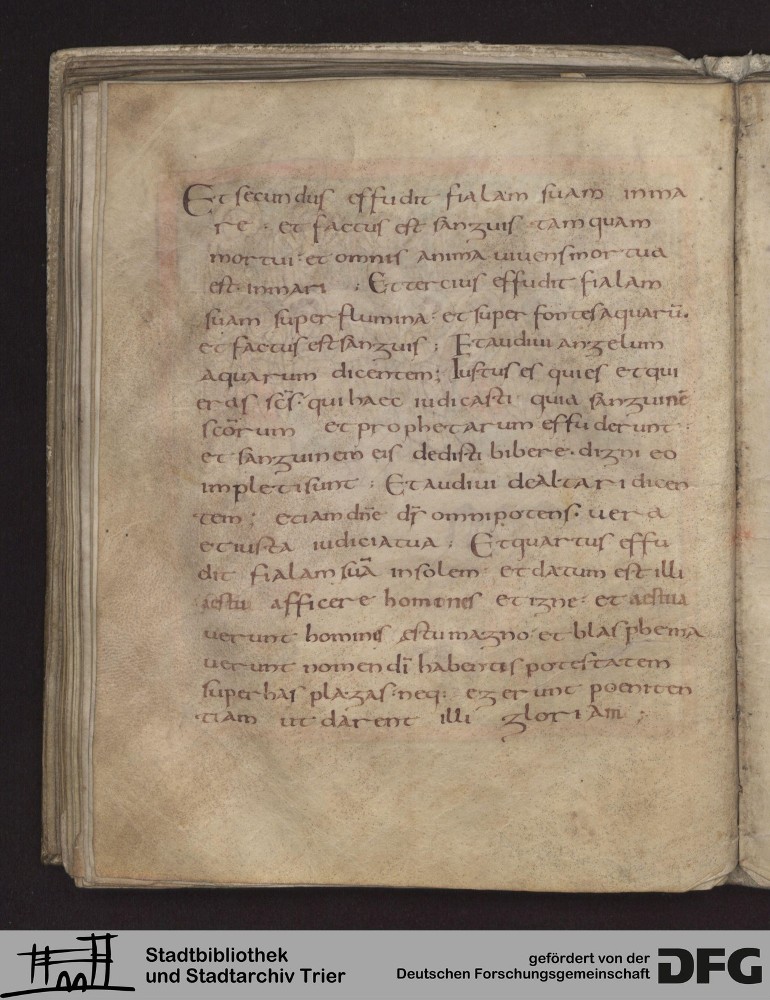 Et secundus effudit fialam suam inma
re · et factus est sanguis tamquam
mortui · et omnis anima uiuens mortua
est · inmari ; Et tertius effudit fialam
suam super flumina · et super fontes aquarū ·
et factus est sanguis ; Et audiui angelum
aquarum dicentem ; Iustus es qui es et qui
eras sc̄s · qui haec iudicasti quia sanguinē
sc̄orum et prophetarum effuderunt ·
et sanguinem eis dedisti bibere · digni eo
impleti sunt ; Et audiui de altari dicen
tem ; etiam dn̄e d̄s omnipotens · uera
et iusta iudicia tua ; Et quartus effu
dit fialam suā in solem et datum est illi
aestu afficere homines et igne · et aestua
uerunt hominis estu magno · et blasphema
uerunt nomen dī habentis potestatem
super has plagas · neq: egerunt poeniten
tiam ut darent illi gloriam ;
Stadtbibliothek
und Stadtarchiv Trier
gefördert von der
Deutschen Forschungsgemeinschaft
DFG